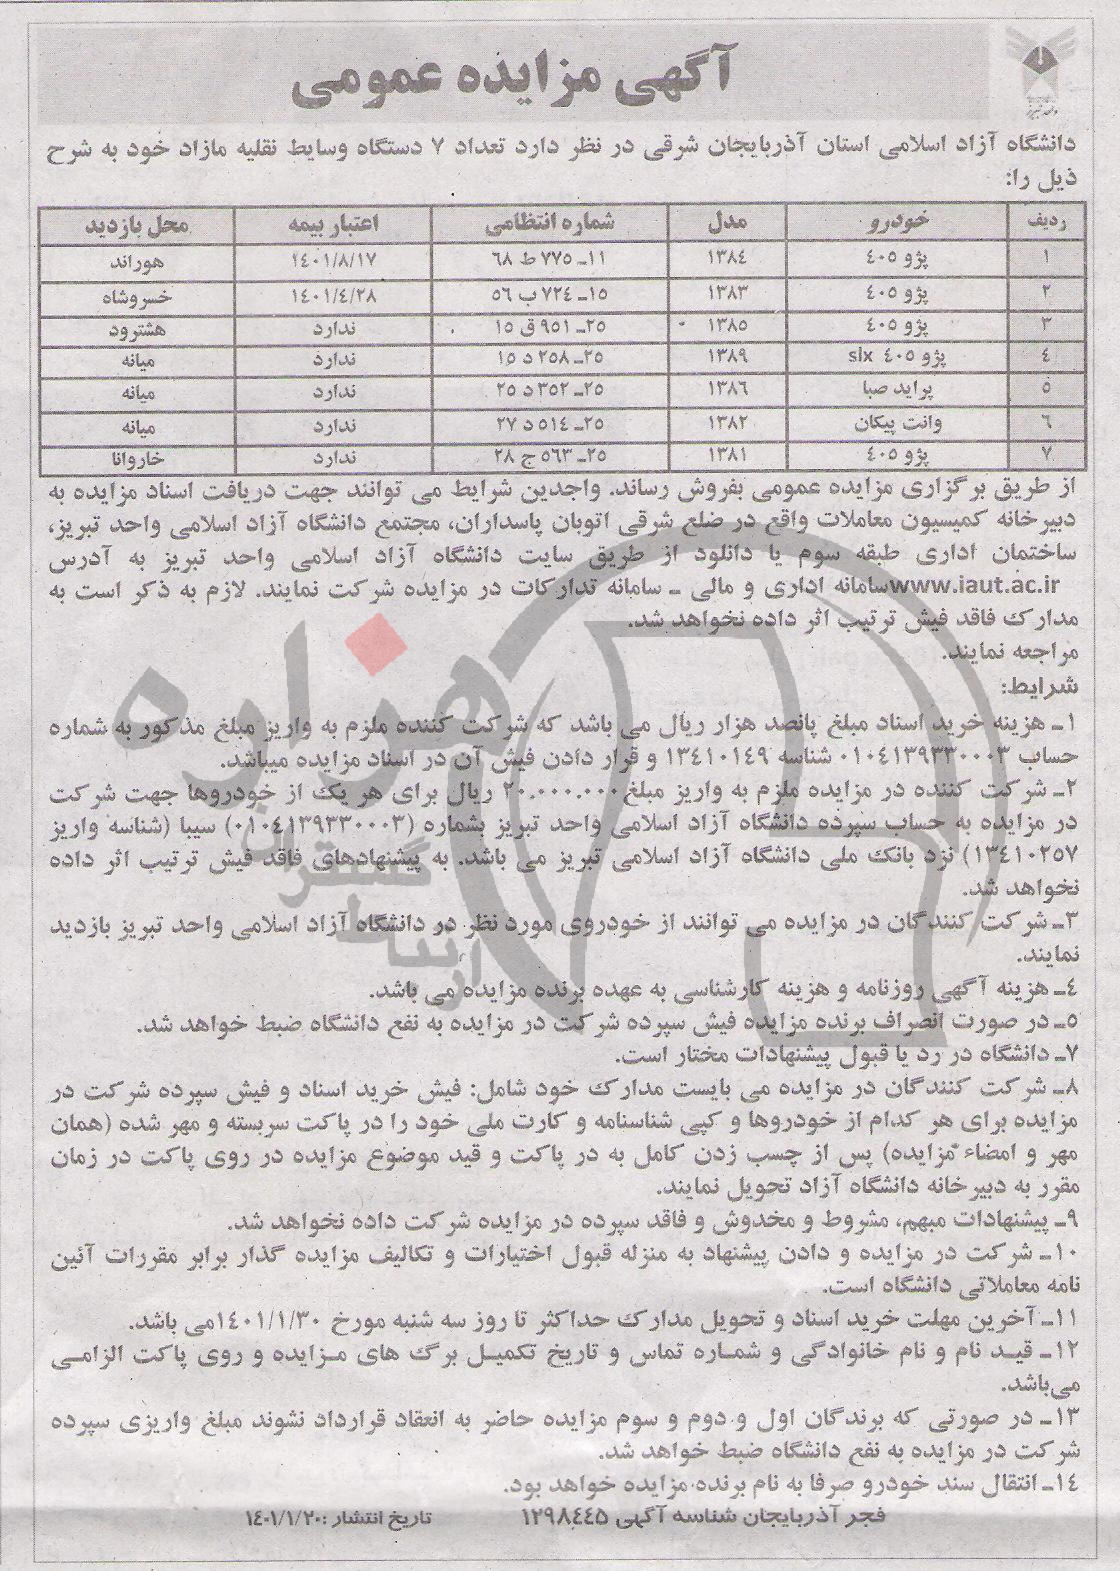 آگهی مزایده عمومی
واحد تبریز
دانشگاه آزاد اسلامی استان آذربایجان شرقی در نظر دارد تعداد ۷ دستگاه وسایط نقلیه مازاد خود به شرح
ذیل را:
ردیف خودرو مدل شماره انتظامی اعتبار بیمه محل بازدید
۱ پژو ۴۰۵ ۱۳۸۴ ۱۱ـ ۷۷۵ ط ۶۸ ۱۴۰۱/۸/۱۷ هوراند
۲ پژو ۴۰۵ ۱۳۸۳ ۱۵ـ ۷۲۴ ب ۵۶ ۱۴۰۱/۴/۲۸ خسروشاه
۳ پژو ۴۰۵ ۱۳۸۵ ۲۵ـ ۹۵۱ ق ۱۵ ندارد هشترود
۴ پژو ۴۰۵ slx ۱۳۸۹ ۲۵ـ ۲۵۸ د ۱۵ ندارد میانه
۵ پراید صبا ۱۳۸۶ ۲۵ـ ۳۵۲ د ۲۵ ندارد میانه
۶ وانت پیکان ۱۳۸۲ ۲۵ـ ۵۱۴ د ۲۷ ندارد میانه
۷ پژو ۴۰۵ ۱۳۸۱ ۲۵ـ ۵۶۳ ج ۲۸ ندارد خاروانا
از طریق برگزاری مزایده عمومی بفروش رساند. واجدین شرایط می توانند جهت دریافت اسناد مزایده به
دبیرخانه کمیسیون معاملات واقع در ضلع شرقی اتوبان پاسداران، مجتمع دانشگاه آزاد اسلامی واحد تبریز،
ساختمان اداری طبقه سوم یا دانلود از طریق سایت دانشگاه آزاد اسلامی واحد تبریز به آدرس
www.iaut.ac.irسامانه اداری و مالی ـ سامانه تدارکات در مزایده شرکت نمایند. لازم به ذکر است به
مدارک فاقد فیش ترتیب اثر داده نخواهد شد.
مراجعه نمایند.
شرایط:
۱ـ هزینه خرید اسناد مبلغ پانصد هزار ریال می باشد که شرکت کننده ملزم به واریز مبلغ مذکور به شماره
حساب ۰۱۰۴۱۳۹۳۳۰۰۰۳ شناسه ۱۳۴۱۰۱۴۹ و قرار دادن فیش آن در اسناد مزایده میباشد.
۲ـ شرکت کننده در مزایده ملزم به واریز مبلغ۲۰.۰۰۰.۰۰۰ ریال برای هر یک از خودروها جهت شرکت
در مزایده به حساب سپرده دانشگاه آزاد اسلامی واحد تبریز بشماره (۰۱۰۴۱۳۹۳۳۰۰۰۳) سیبا (شناسه واریز
۱۳۴۱۰۲۵۷) نزد بانک ملی دانشگاه آزاد اسلامی تبریز می باشد. به پیشنهادهای فاقد فیش ترتیب اثر داده
نخواهد شد.
۳ـ شرکت کنندگان در مزایده می توانند از خودروی مورد نظر در دانشگاه آزاد اسلامی واحد تبریز بازدید
نمایند.
۴ـ هزینه آگهی روزنامه و هزینه کارشناسی به عهده برنده مزایده می باشد.
۵ـ در صورت انصراف برنده مزایده فیش سپرده شرکت در مزایده به نفع دانشگاه ضبط خواهد شد.
۷ـ دانشگاه در رد یا قبول پیشنهادات مختار است.
۸ـ شرکت کنندگان در مزایده می بایست مدارک خود شامل: فیش خرید اسناد و فیش سپرده شرکت در
مزایده برای هر کدام از خودروها و کپی شناسنامه و کارت ملی خود را در پاکت سربسته و مهر شده (همان
مهر و امضاء مزایده) پس از چسب زدن کامل به در پاکت و قید موضوع مزایده در روی پاکت در زمان
مقرر به دبیرخانه دانشگاه آزاد تحویل نمایند.
۹ـ پیشنهادات مبهم، مشروط و مخدوش و فاقد سپرده در مزایده شرکت داده نخواهد شد.
۱۰ـ شرکت در مزایده و دادن پیشنهاد به منزله قبول اختیارات و تکالیف مزایده گذار برابر مقررات آئین
نامه معاملاتی دانشگاه است.
۱۱ـ آخرین مهلت خرید اسناد و تحویل مدارک حداکثر تا روز سه شنبه مورخ ۱۴۰۱/۱/۳۰می باشد.
۱۲ـ قید نام و نام خانوادگی و شماره تماس و تاریخ تکمیل برگ های مزایده و روی پاکت الزامی
می‌باشد.
۱۳ـ در صورتی که برندگان اول و دوم و سوم مزایده حاضر به انعقاد قرارداد نشوند مبلغ واریزی سپرده
شرکت در مزایده به نفع دانشگاه ضبط خواهد شد.
۱۴ـ انتقال سند خودرو صرفا به نام برنده مزایده خواهد بود.
فجر آذربایجان شناسه آگهی ۱۲۹۸۴۴۵ تاریخ انتشار :۱۴۰۱/۱/۲۰
هزاره